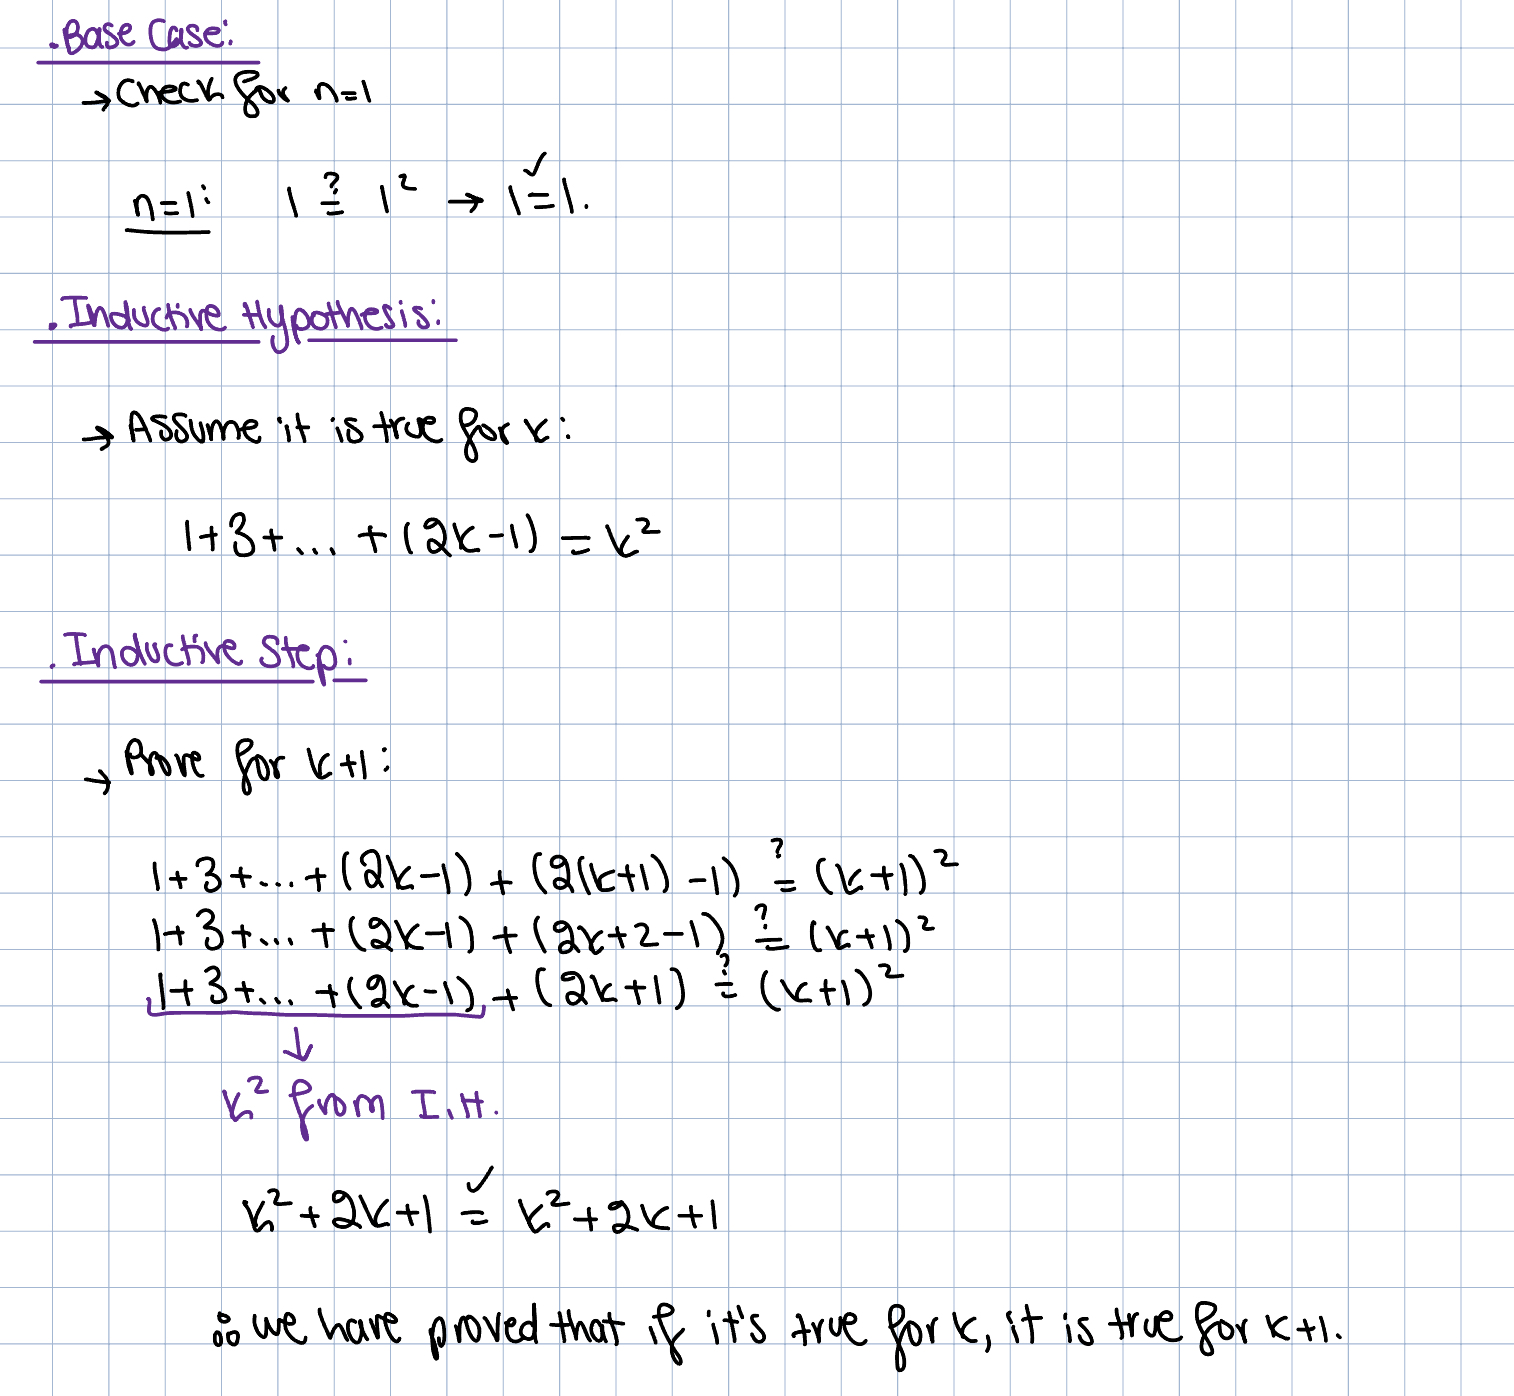 . Base Case:
→ Check for n=1
n=1: 1 ≟ 1² → 1 =✓ 1.
. Inductive Hypothesis:
→ Assume it is true for k:
1+3+... +(2k-1) = k²
. Inductive Step:
→ Prove for k+1:
1+3+...+(2k-1) + (2(k+1)-1) ≟ (k+1)²
1+3+... +(2k-1) + (2k+2-1) ≟ (k+1)²
1+3+... +(2k-1) + (2k+1) ≟ (k+1)²
↓
k² from I.H.
k²+2k+1 =✓ k²+2k+1
∴ we have proved that if it's true for k, it is true for k+1.